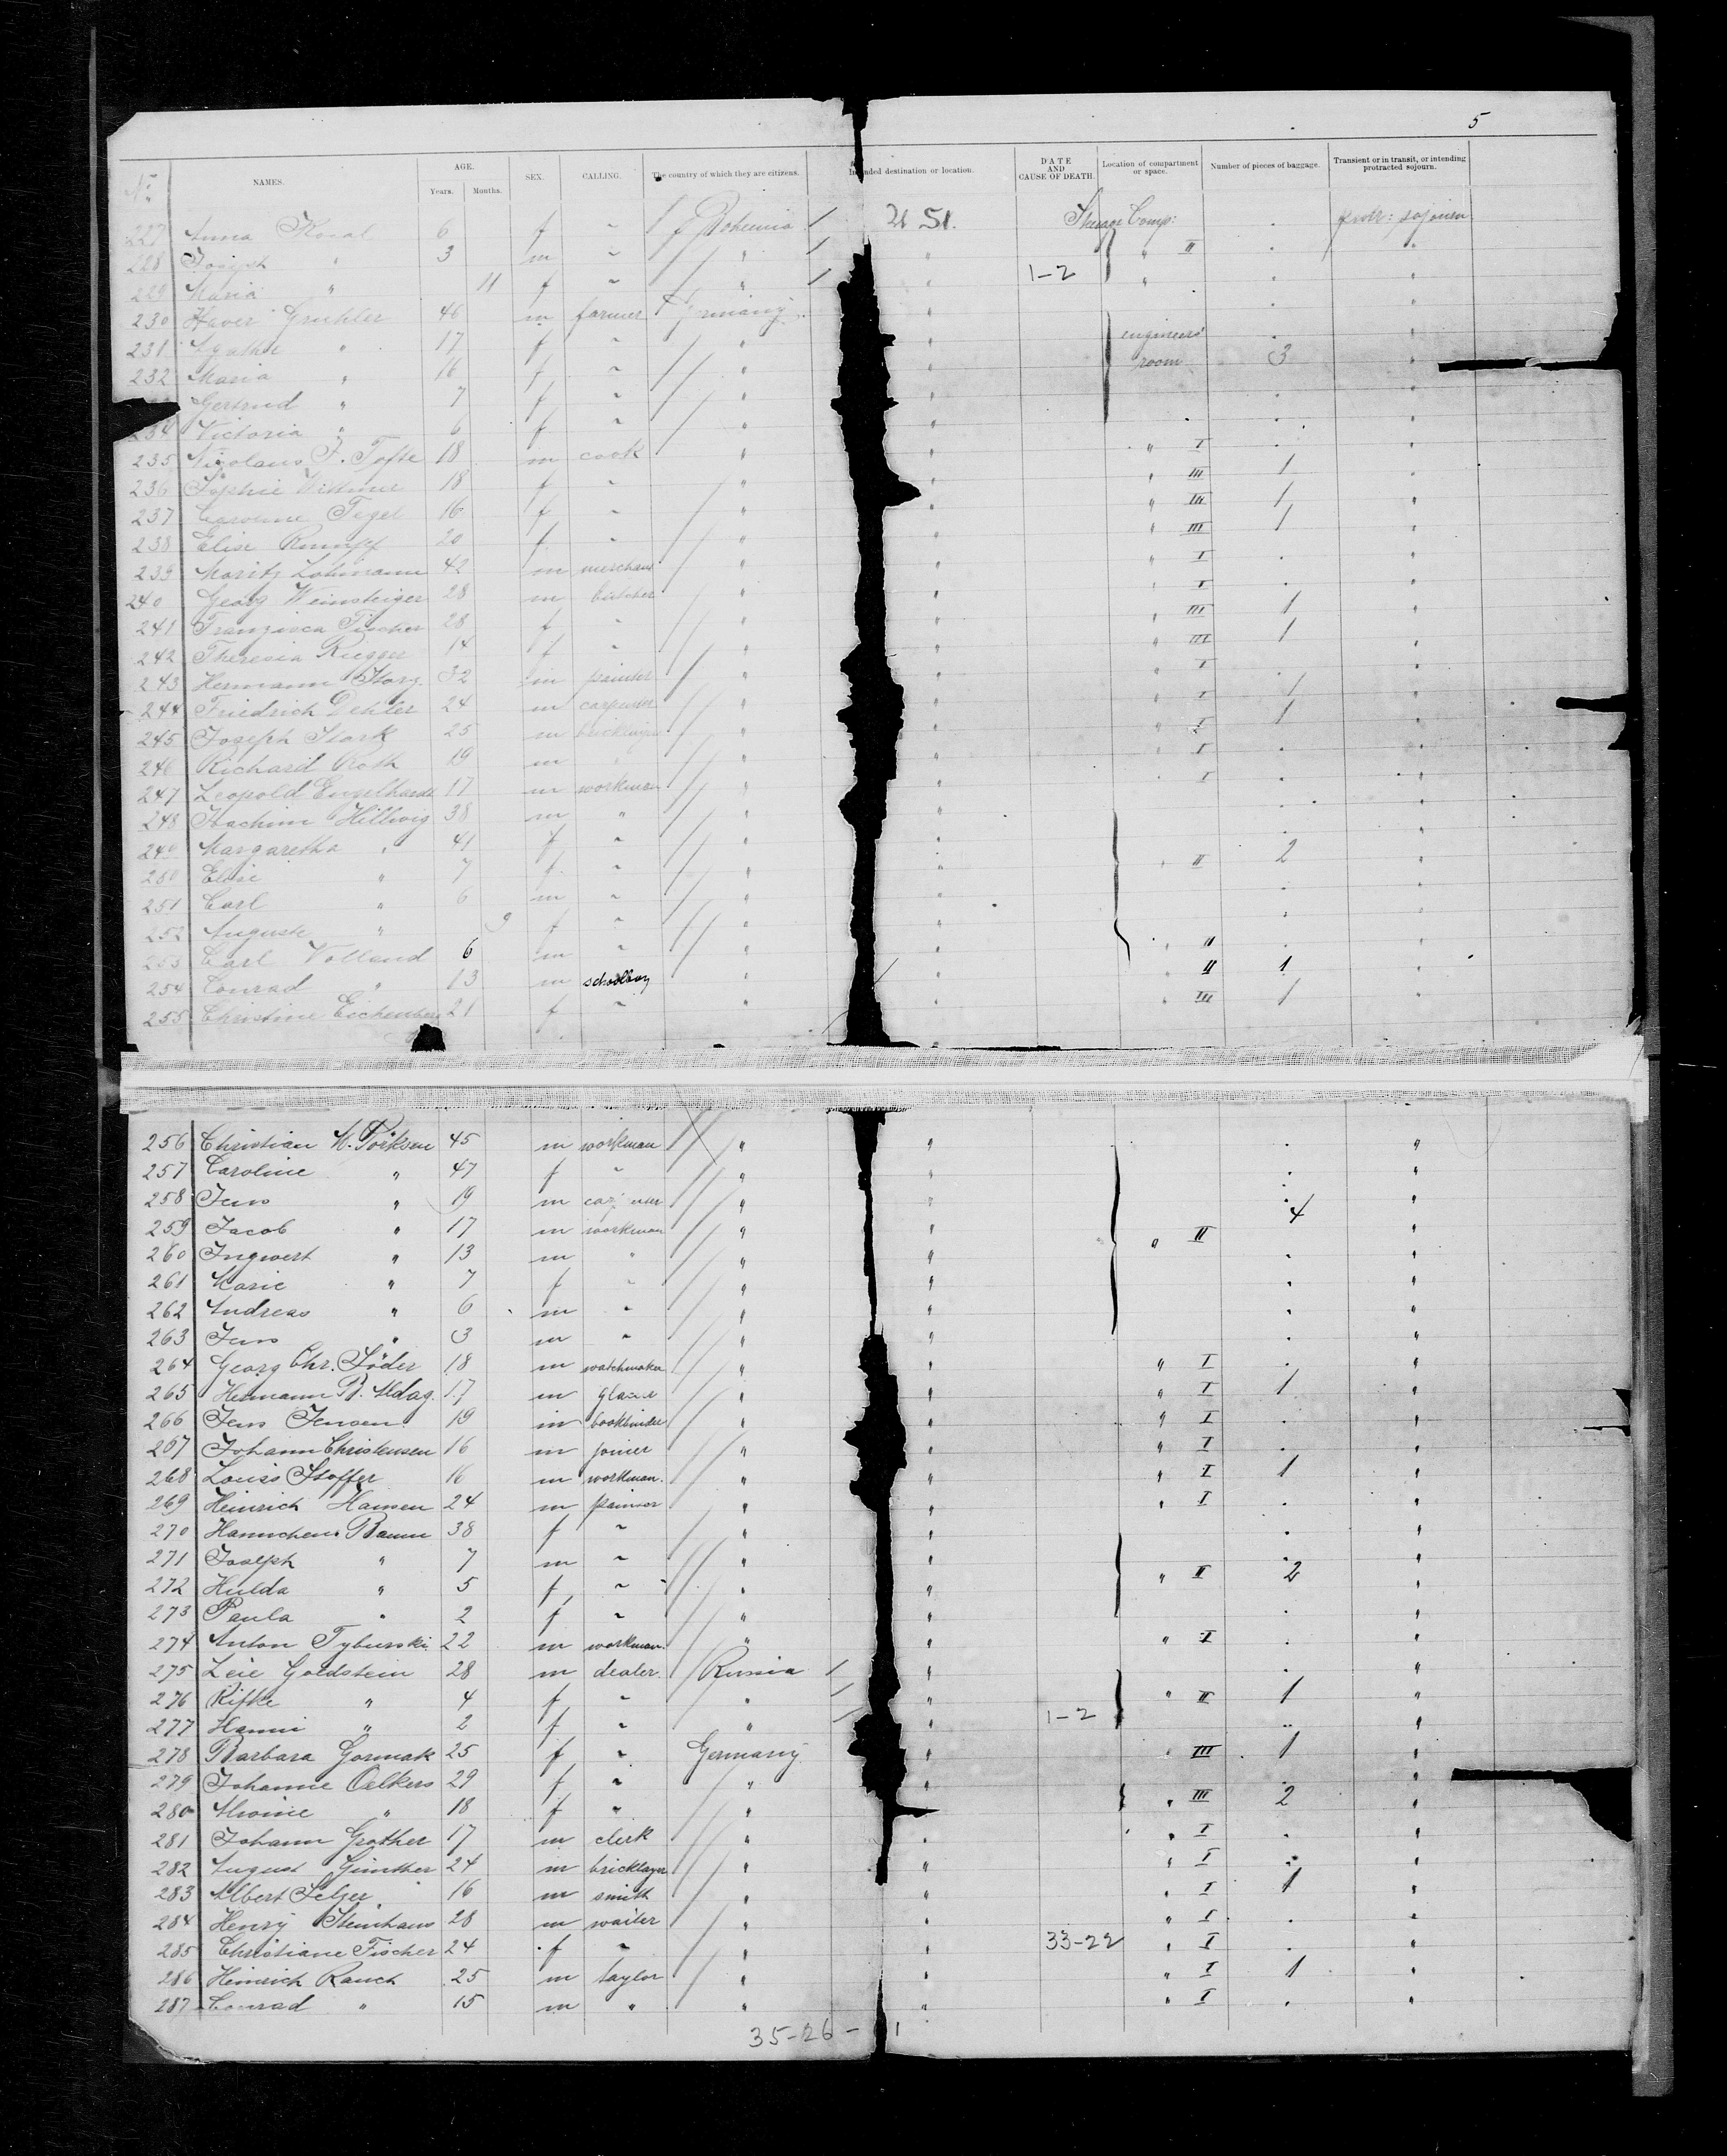 5
No NAMES. AGE. Years. Months. SEX. CALLING. The country of which they are citizens. Intended destination or location. DATE AND CAUSE OF DEATH. Location of compartment or space. Number of pieces of baggage. Transient or in transit, or intending protracted sojourn.
227 Anna 6 f " Bohemia U St. Comp: protr: sojourn
228 Joseph " 3 m " " " " II "
229 Maria " 11 f " " " 1-2 " "
230 Xaver Gruhler 46 m farmer Germany "
231 Agathe " 17 f " " " engineers' "
232 Maria " 16 f " " " room 3 "
Gertrud " 7 f " " " "
234 Victoria " 6 f " " " "
235 Nicolaus J. Tofte 18 m cook " " " I "
236 Sophie 18 f " " " " III 1 "
237 Caroline 16 f " " " " III 1 "
238 Elise Rumpf 20 f " " " " III 1 "
239 Moritz Lohmann 42 m merchant " " " I "
240 Georg Weinsteiger 28 m butcher " " " I "
241 Franzisca Fischer 28 f " " " " III 1 "
242 Theresia Rieger 14 f " " " " III 1 "
243 Hermann Storz 32 m painter " " " I "
244 Friedrich Dehler 24 m carpenter " " " I 1 "
245 Joseph Stark 25 m bricklayer " " " I 1 "
246 Richard Roth 19 m " " " " I "
247 Leopold Engelhardt 17 m workman " " " I "
248 Joachim Hillwig 38 m " " " "
249 Margaretha " 41 f " " " "
250 Elise " 7 f " " " " II 2 "
251 Carl " 6 m " " " "
252 Auguste " 9 f " " " "
253 Carl Volland 6 m " " " " II "
254 Conrad " 13 m schoolboy " " " II 1 "
255 Christine Eichenberg 21 f " " " " III 1 "
256 Christian M. Pörksen 45 m workman " " "
257 Caroline " 47 f " " " "
258 Jens " 19 m carpenter " " 4 "
259 Jacob " 17 m workman " " " II "
260 Ingwert " 13 m " " " "
261 Marie " 7 f " " " "
262 Andreas " 6 m " " " "
263 Jens " 3 m " " " "
264 Georg Chr. Söder 18 m watchmaker " " " I "
265 Hermann B. 17 m " " " I 1 "
266 Jens Jensen 19 m bookbinder " " " I "
267 Johann Christensen 16 m joiner " " " I "
268 Louis Stoffer 16 m workman. " " " I 1 "
269 Heinrich Hansen 24 m painter " " " I "
270 Hannchen Baum 38 f " " " "
271 Joseph " 7 m " " " "
272 Hulda " 5 f " " " " II 2 "
273 Paula " 2 f " " " "
274 Anton Tyburski 22 m workman. " " " I "
275 Leie Goldstein 28 m dealer. Russia " "
276 Rifke " 4 f " " " " II 1 "
277 Hanni " 2 f " " " 1-2 "
278 Barbara Gormak 25 f " Germany " " III 1 "
279 Johanne Oelkers 29 f " " " "
280 " 18 f " " " " III 2 "
281 Johann Grother 17 m clerk " " " I "
282 August Günther 24 m bricklayer " " " I "
283 Albert Selzer 16 m smith " " " I 1 "
284 Henry Steinhaus 28 m waiter " " " I "
285 Christiane Fischer 24 f " " " 33-22 " I "
286 Heinrich Rauch 25 m taylor " " " I 1 "
287 Conrad " 15 m " " " " I "
35-26- 1